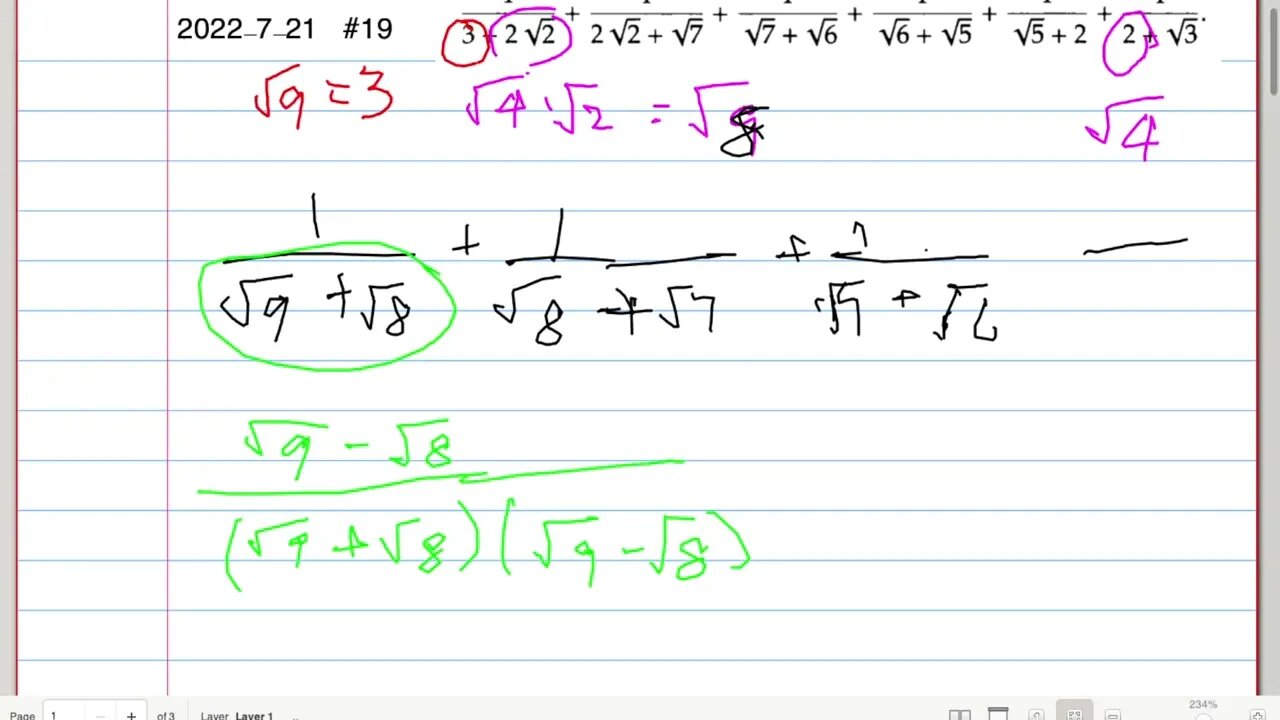 2022-7-21 #19
3 + 2√2 + 2√2 + √7 + √7 + √6 + √6 + √5 + √5 + 2 + 2 + √3.
√9 = 3 √4 · √2 = √8 √4
1 + 1 + 1
√9 + √8 √8 + √7 √7 + √6
√9 - √8
(√9 + √8) (√9 - √8)
234%
Page 1 - + of 3 Layer Layer 1